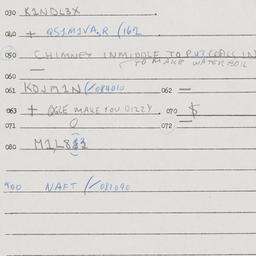 030 K1NDL3X
040 + QS1M1VA,R (162
050 CHIMNEY IN MIDDLE TO PUT COALS IN
— TO MAKE WATER BOIL
060
061 KDJM1N (/084010 062 —
063 + OGLE MAKE YOU DIZZY 070 $
071 072 —
080 M1,L8
900 NAFT (/081090